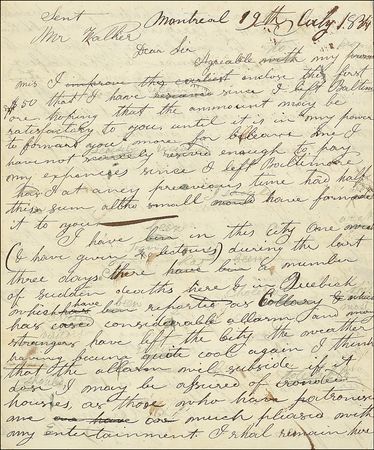 Sent Montreal 12th July 1834
Mr Walker
Dear Sir
Agreeable with my promis
mis I improve this earliest enclose this first
$50 that I have received since I left Baltim
ore hoping that the ammount may be
satisfactory to you until it is in my power
to forward you more for beleave me I
have not scarcely received enough to pay
my expencies since I left Baltimore
has I at aney previous time had half
these sum altho small would have forwarded
it to you
I have been in this city one week
(I have given 3 lectures) during the last
three days there have been a number
of sudden deaths here & in Quebeck
which have been reported as Collary & which
has caused considerable allarm and many
strangers have left the City the weather
having becume quite cool again I think
that the allarm will subside if it
dose I may be assured of crouded
houses, as those who have patronised
me are much pleased with
my entertainment. I shal remain here